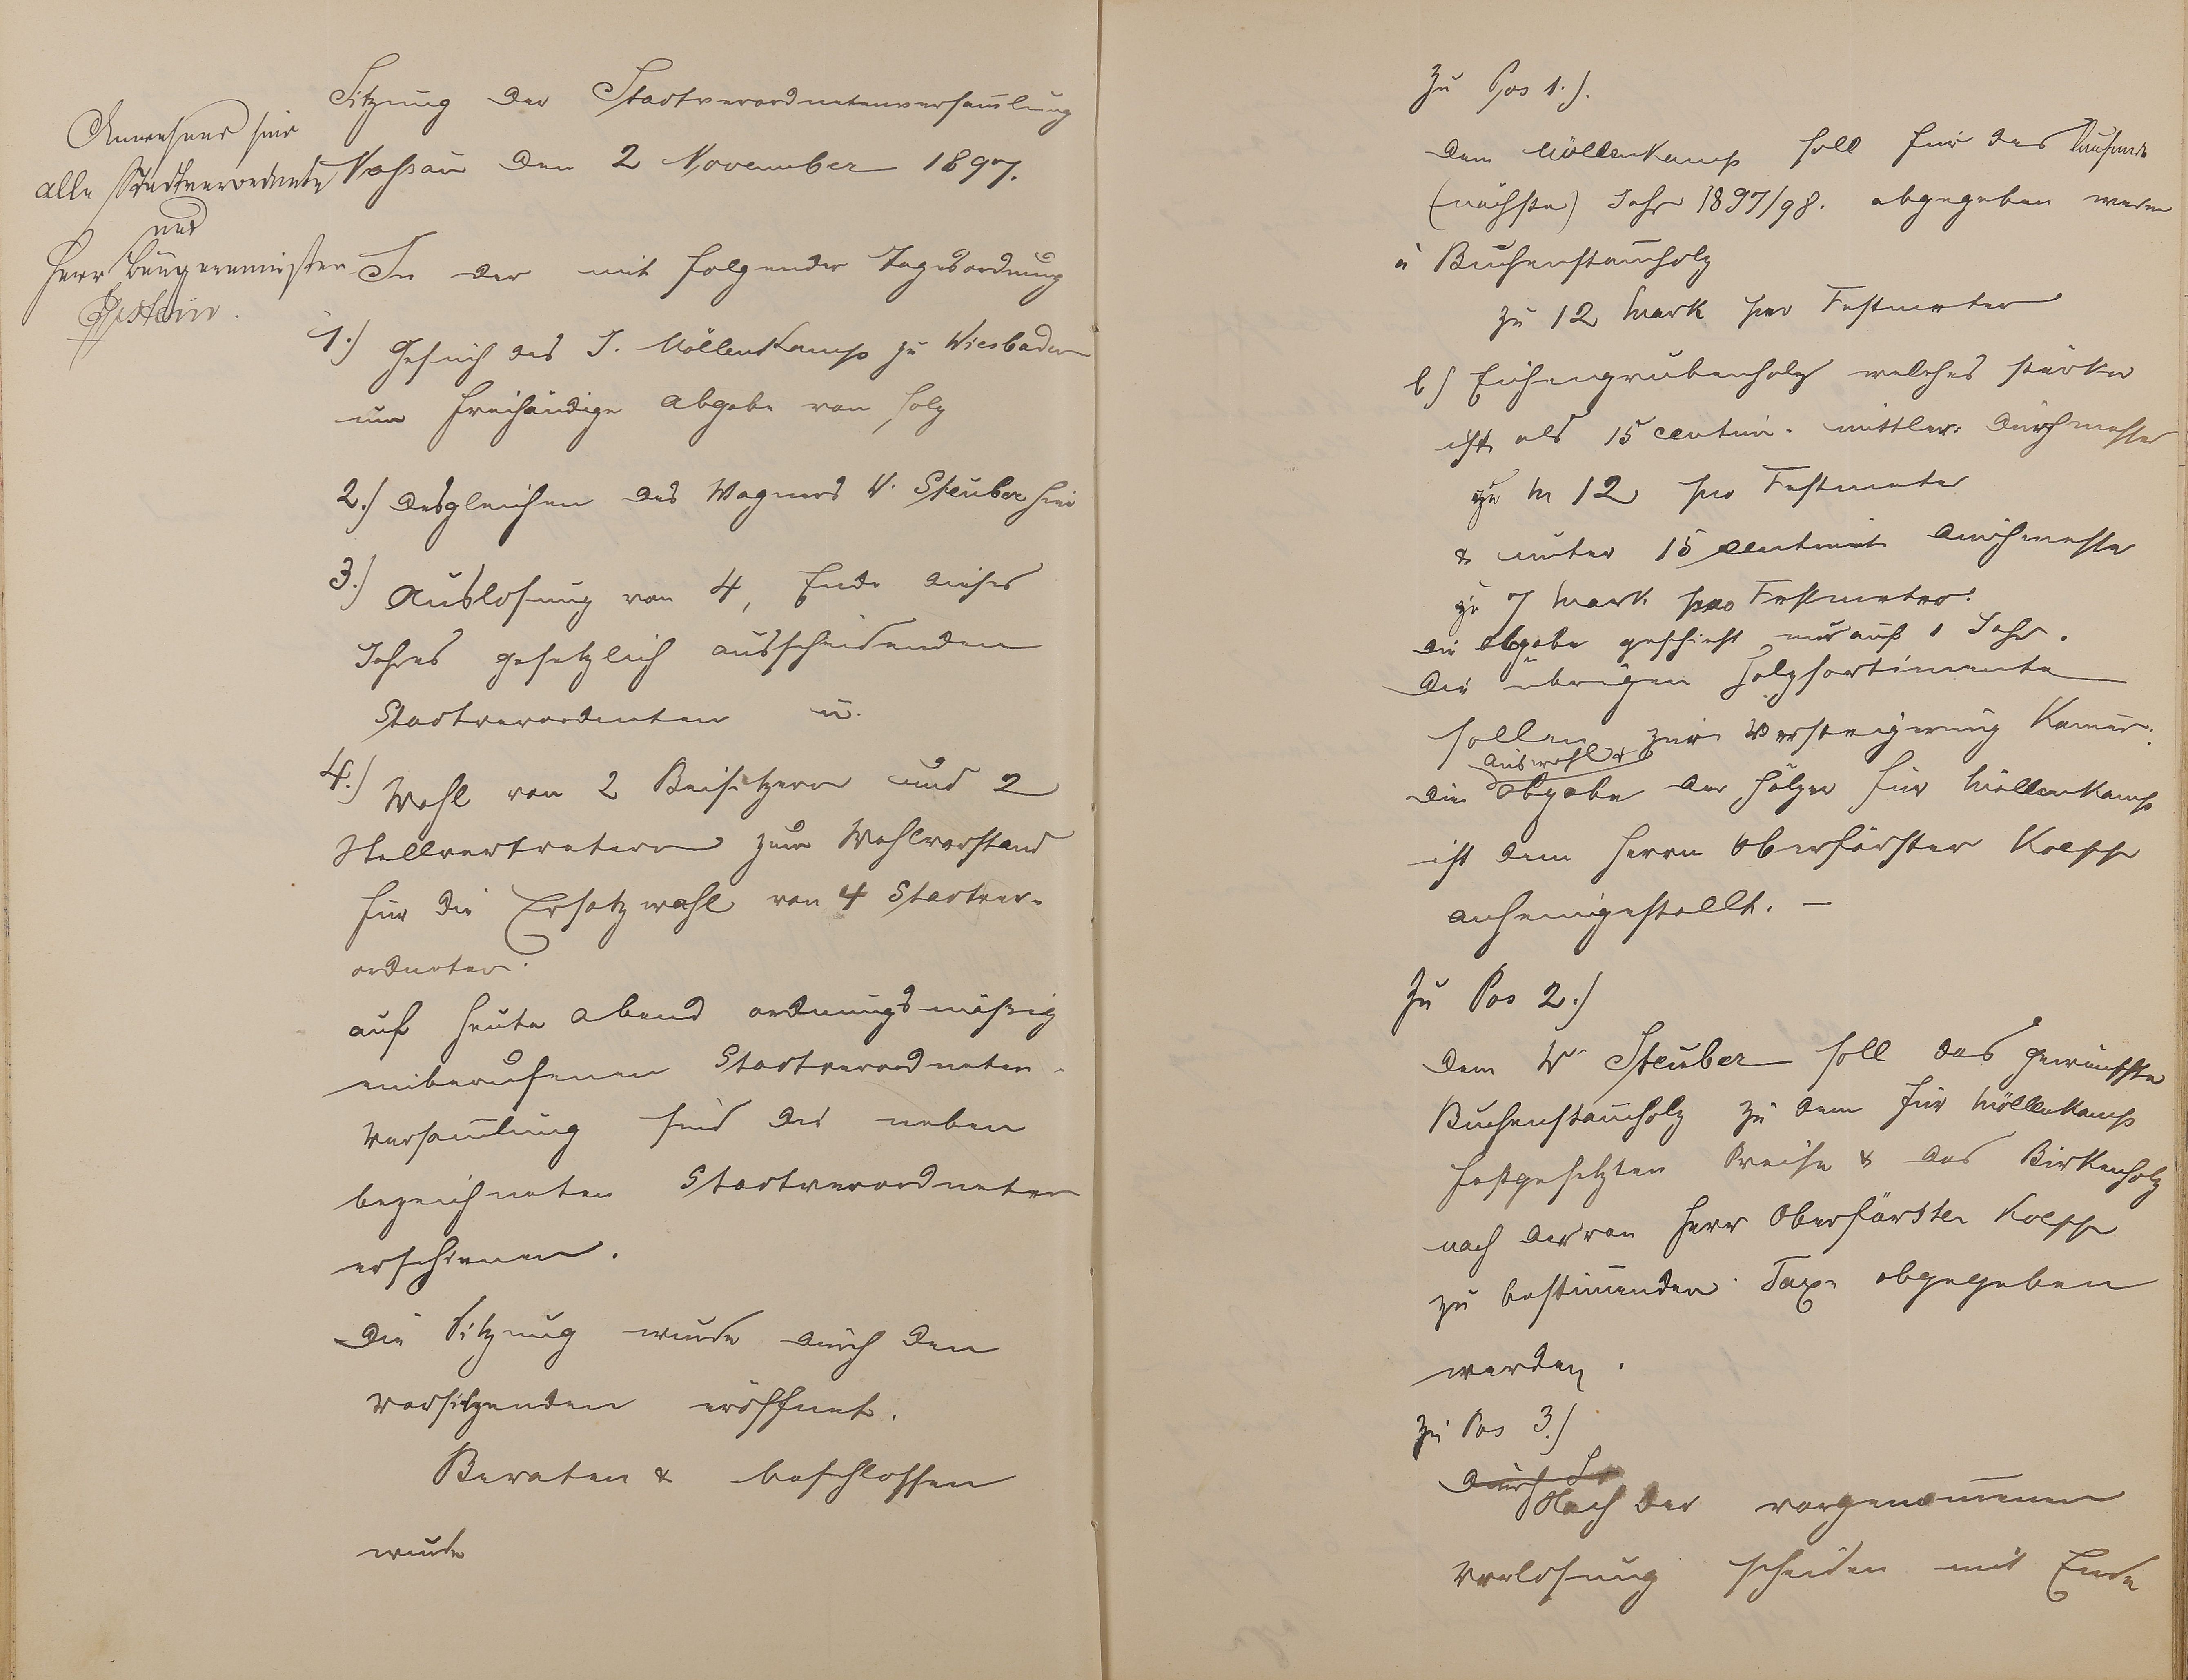 Anwesend sind
alle Stadtverordnete
und
Herr Bürgermeister
Sitzung der Stadtverordnetenversam̅lung
Nassau den 2 November 1897.
In der mit folgender Tagesordnung
1.) Gesuch des J. Möllenkamp zu Wiesbaden
um freihändige Abgabe von Holz
2.) desgleichen des Wagners W. Steuber hier
3.) Auslosung von 4, Ende dieses
Jahres gesetzlich ausscheidenden
Stadtverordneten u.
4.) Wahl von 2 Beisitzern und 2
Stellvertretern zum Wahlvorstand
für die Ersatzwahl von 4 Stadtver-
ordneten.
auf heute Abend ordnungsmäßig
einberufenen Stadtverordneten-
versam̅lung sind die neben
bezeichneten Stadtverordneten
erschienen.
Die Sitzung wurde durch den
Vorsitzenden eröffnet.
Beraten & beschlossen
wurde
Zu Pos 1.).
Dem Möllenkamp soll für das laufende
(nächste) Jahr 1897/98. abgegeben werden
a Buchenstam̅holz
zu 12 Mark pro Festmeter
b) Eichengrubenholz welches stärker
ist als 15 centim. mittler. Durchmesser
zu M 12 pro Festmeter
& unter 15 centimet. Durchmesser
zu 7 Mark pro Festmeter.
Die Abgabe geschieht nur auf 1 Jahr.
Die übrigen Holzsortimente
sollen zur Versteigerung kommen.
Auswahl &
Die Abgabe der Hölzer für Möllenkamp
ist dem Herrn Oberförster Koepp
anheimgestellt. —
Zu Pos 2.)
Dem W. Steuber soll das gewünschte
Buchenstam̅holz zu dem für Möllenkamp
festgesetzten Preise & das Birkenholz
nach der von Herr Oberförster Koepp
zu bestim̅enden Taxe abgegeben
werden.
Zu Pos 3.)
Durch
Nach der vorgenom̅enen
Verlosung scheiden mit Ende